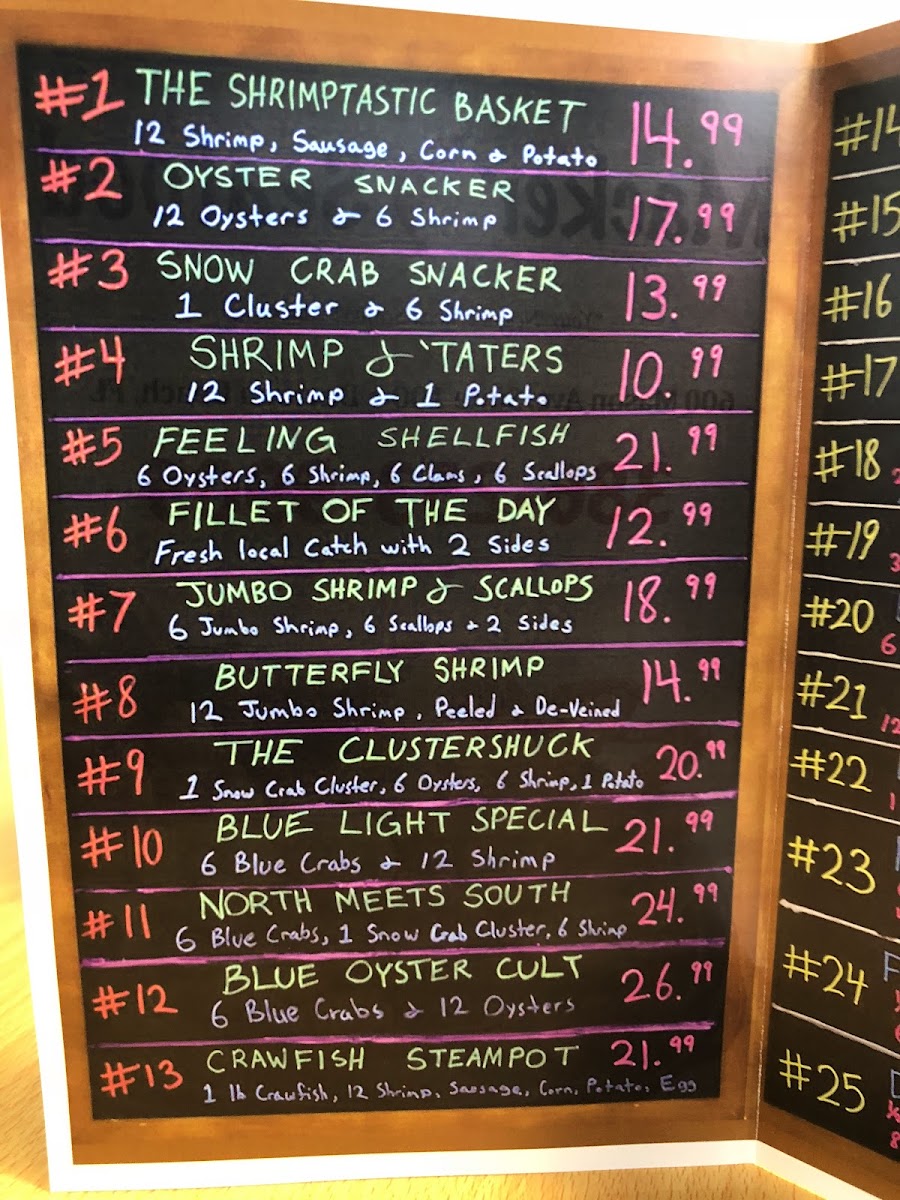 #1 THE SHRIMPTASTIC BASKET 14.99
12 Shrimp, Sausage, Corn & Potato
#2 OYSTER SNACKER 17.99
12 Oysters & 6 Shrimp
#3 SNOW CRAB SNACKER 13.99
1 Cluster & 6 Shrimp
#4 SHRIMP & 'TATERS 10.99
12 Shrimp & 1 Potato
#5 FEELING SHELLFISH 21.99
6 Oysters, 6 Shrimp, 6 Clams, 6 Scallops
#6 FILLET OF THE DAY 12.99
Fresh local Catch with 2 Sides
#7 JUMBO SHRIMP & SCALLOPS 18.99
6 Jumbo Shrimp, 6 Scallops & 2 Sides
#8 BUTTERFLY SHRIMP 14.99
12 Jumbo Shrimp, Peeled & De-Veined
#9 THE CLUSTERSHUCK 20.99
1 Snow Crab Cluster, 6 Oysters, 6 Shrimp, 1 Potato
#10 BLUE LIGHT SPECIAL 21.99
6 Blue Crabs & 12 Shrimp
#11 NORTH MEETS SOUTH 24.99
6 Blue Crabs, 1 Snow Crab Cluster, 6 Shrimp
#12 BLUE OYSTER CULT 26.99
6 Blue Crabs & 12 Oysters
#13 CRAWFISH STEAMPOT 21.99
1 lb Crawfish, 12 Shrimp, Sausage, Corn, Potato, Egg
#14
#15
#16
#17
#18
#19
#20
#21
#22
#23
#24
#25